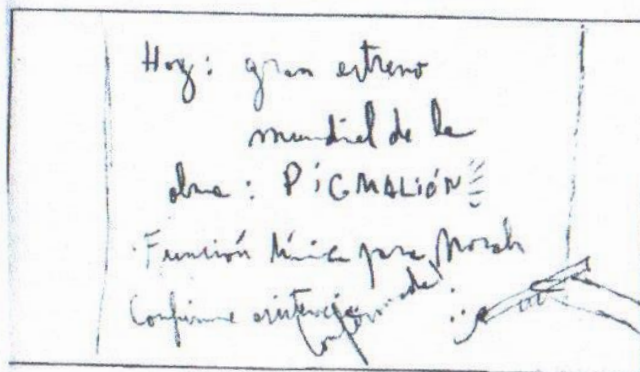 Hoy: gran estreno
mundial de la
obra: PIGMALIÓN
Función única para
Confirme asistencia